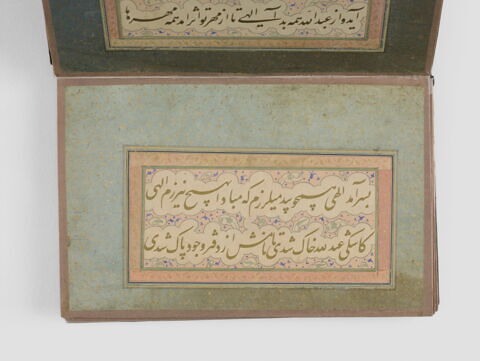 آید و از عبدالله همه بد آید الهی تا از مهر تو اثر آمد همه مهرها
بسر آمد الهی همچو بید میلرزم که مبادا بهیچ نیرزم الهی
کاشکی عبدالله خاک شدی تا نامش از دفتر وجود پاک شدی